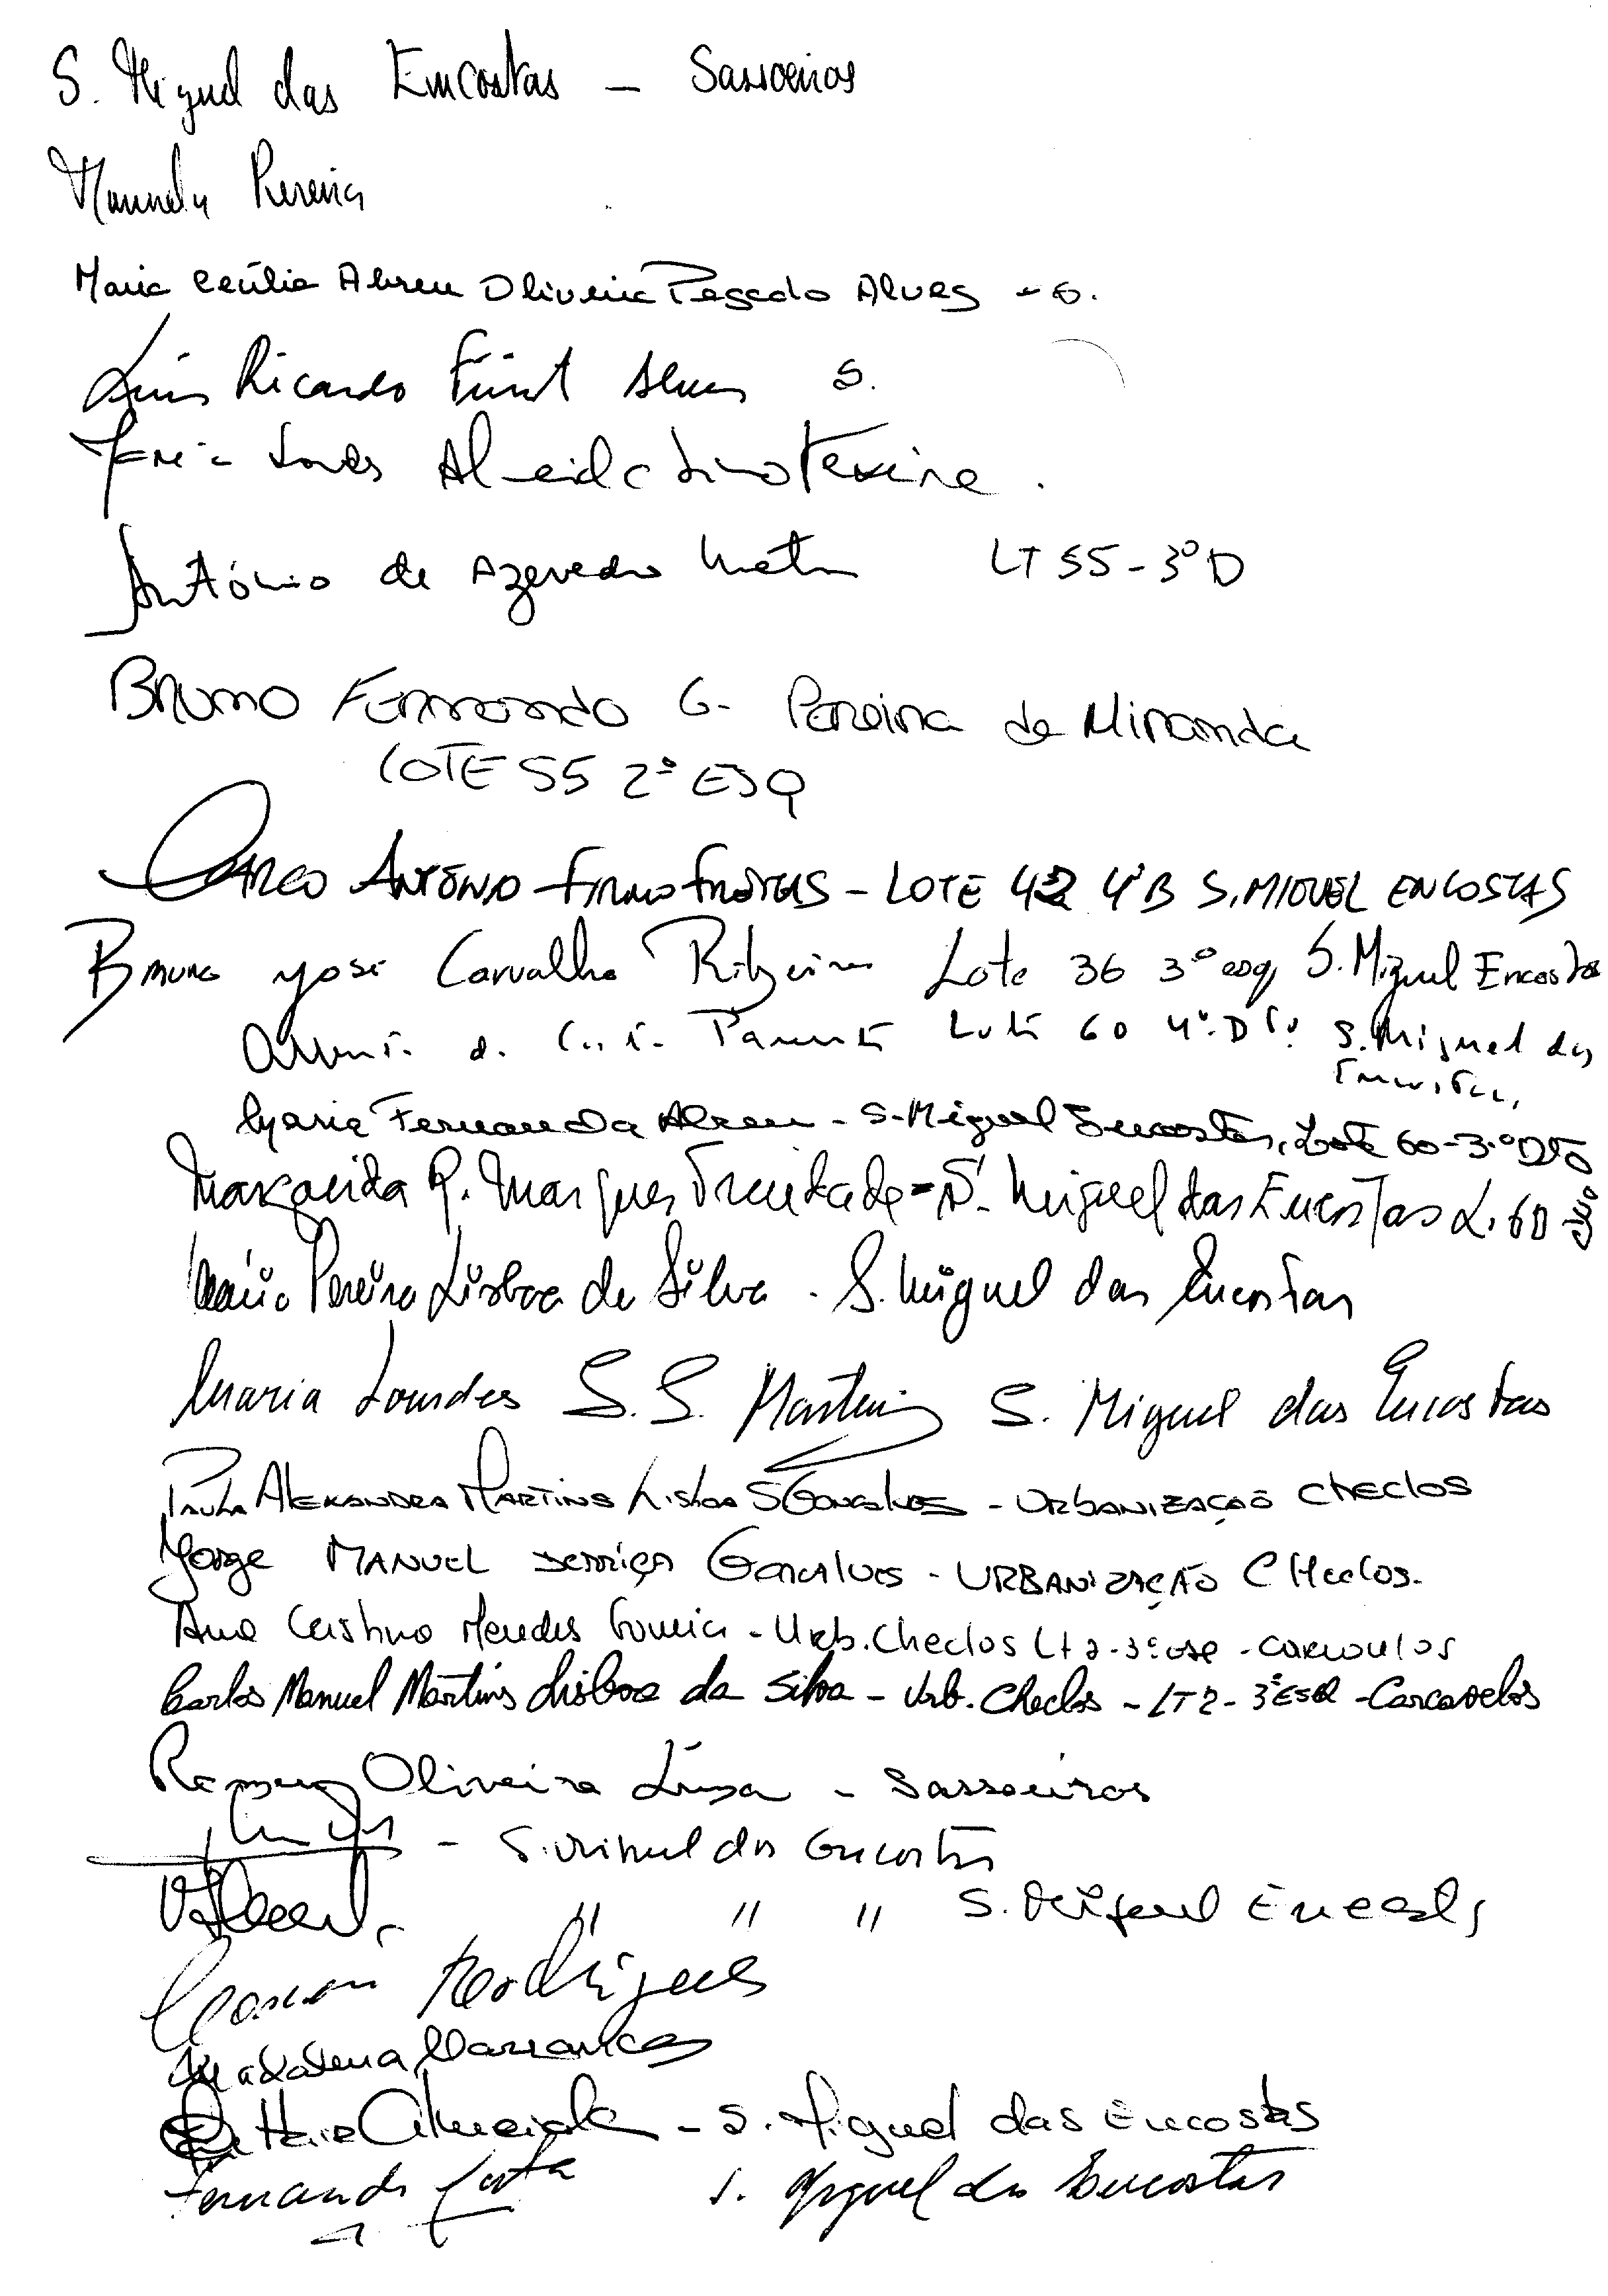 S. Miguel das Encostas – Sassoeiros
Manuela Pereira
Maria Cecília Abreu Oliveira Pegado Alves - S.
Luís Ricardo Fürst Alves S.
Almeida Lino Texeira.
António de Azevedo LT 55 - 3º D
Bruno Fernando G. Pereira de Miranda
LOTE 55 2º ESQ
Marco António Firmo Freitas - LOTE 42 4ºB S. MIGUEL ENCOSTAS
Bruno José Carvalho Ribeiro Lote 36 3º esq S. Miguel Encostas
Lote 60 4º. Dto. S. Miguel das
Encostas,
Maria Fernanda Abreu - S. Miguel Encostas, Lote 60 - 3.º DTO
Margarida R. Marques Trindade = S. Miguel das Encostas L. 60
Mário Pereira Lisboa da Silva - S. Miguel das Encostas
Maria Lourdes S. S. Martins S. Miguel das Encostas
Paula Alexandra Martins Lisboa S Gonçalves - Urbanização Checlos
Jorge Manuel Serriça Goncalves - URBANIZAÇÃO Checlos.
Ana Cristina Mendes - Urb. Checlos Lt 2 - 3º esq - Carcavelos
Carlos Manuel Martins Lisboa da Silva - Urb. Checlos - LT 2 - 3º ESQ - Carcavelos
Oliveira - Sassoeiros
- S. Miguel das Encostas
" " " S. Miguel Encostas
Rodrigues
Madalena
Almeida - S. Miguel das Encostas
Fernando Costa S. Miguel das Encostas